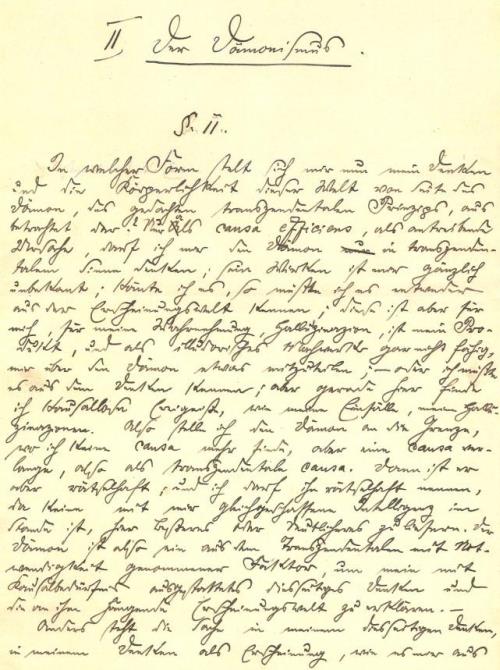 II, Der Dämonismus.
§. 11..
In welcher Form stellt sich mir nun mein Denken
und die Körperlichkeit dieser Welt von seite des
Dämon, des gedachten transzendentalen Prinzips, aus
betrachtet dar? Nur als causa efficiens, als antreibende
Ursache, darf ich mir den Dämon in transzenden-
talem Sinne denken; sein Wirken ist mir gänzlich
unbekant; könte ich es, so müßte ich es entweder
aus der Erscheinungswelt kennen; diese ist aber für
mich, für meine Wahrnehmung, Halluzinazion, ist mein Pro-
dukt, und als illusorisches Machwerk gar nicht fähig,
mir über den Dämon etwas mitzuteilen; – oder ich müßte
es aus dem Denken kennen; aber gerade hier finde
ich kausallose Ereigniße, wie meine Einfälle, meine Hallu-
zinazionen. Also stelle ich den Dämon an die Grenze,
wo ich keine causa mehr finde, aber eine causa ver-
lange, also als transzendentale causa. Dann ist er
aber rätselhaft; und ich darf ihn rätselhaft nennen,
da keine mit mir gleichgeschaffene Intelligenz im
stande ist, hier Besseres oder Deutlicheres zu liefern. Der
Dämon ist also ein aus dem Transzendentalen mit Not-
wendigkeit genommener Faktor, um mein mit
Kausalbedürfnis ausgestattetes diesseitiges Denken und
die an ihm hängende Erscheinungswelt zu erklären. –
Anders steht die Sache in meinem diesseitigen Denken,
in meinem Denken als Erscheinung, wie es mir aus